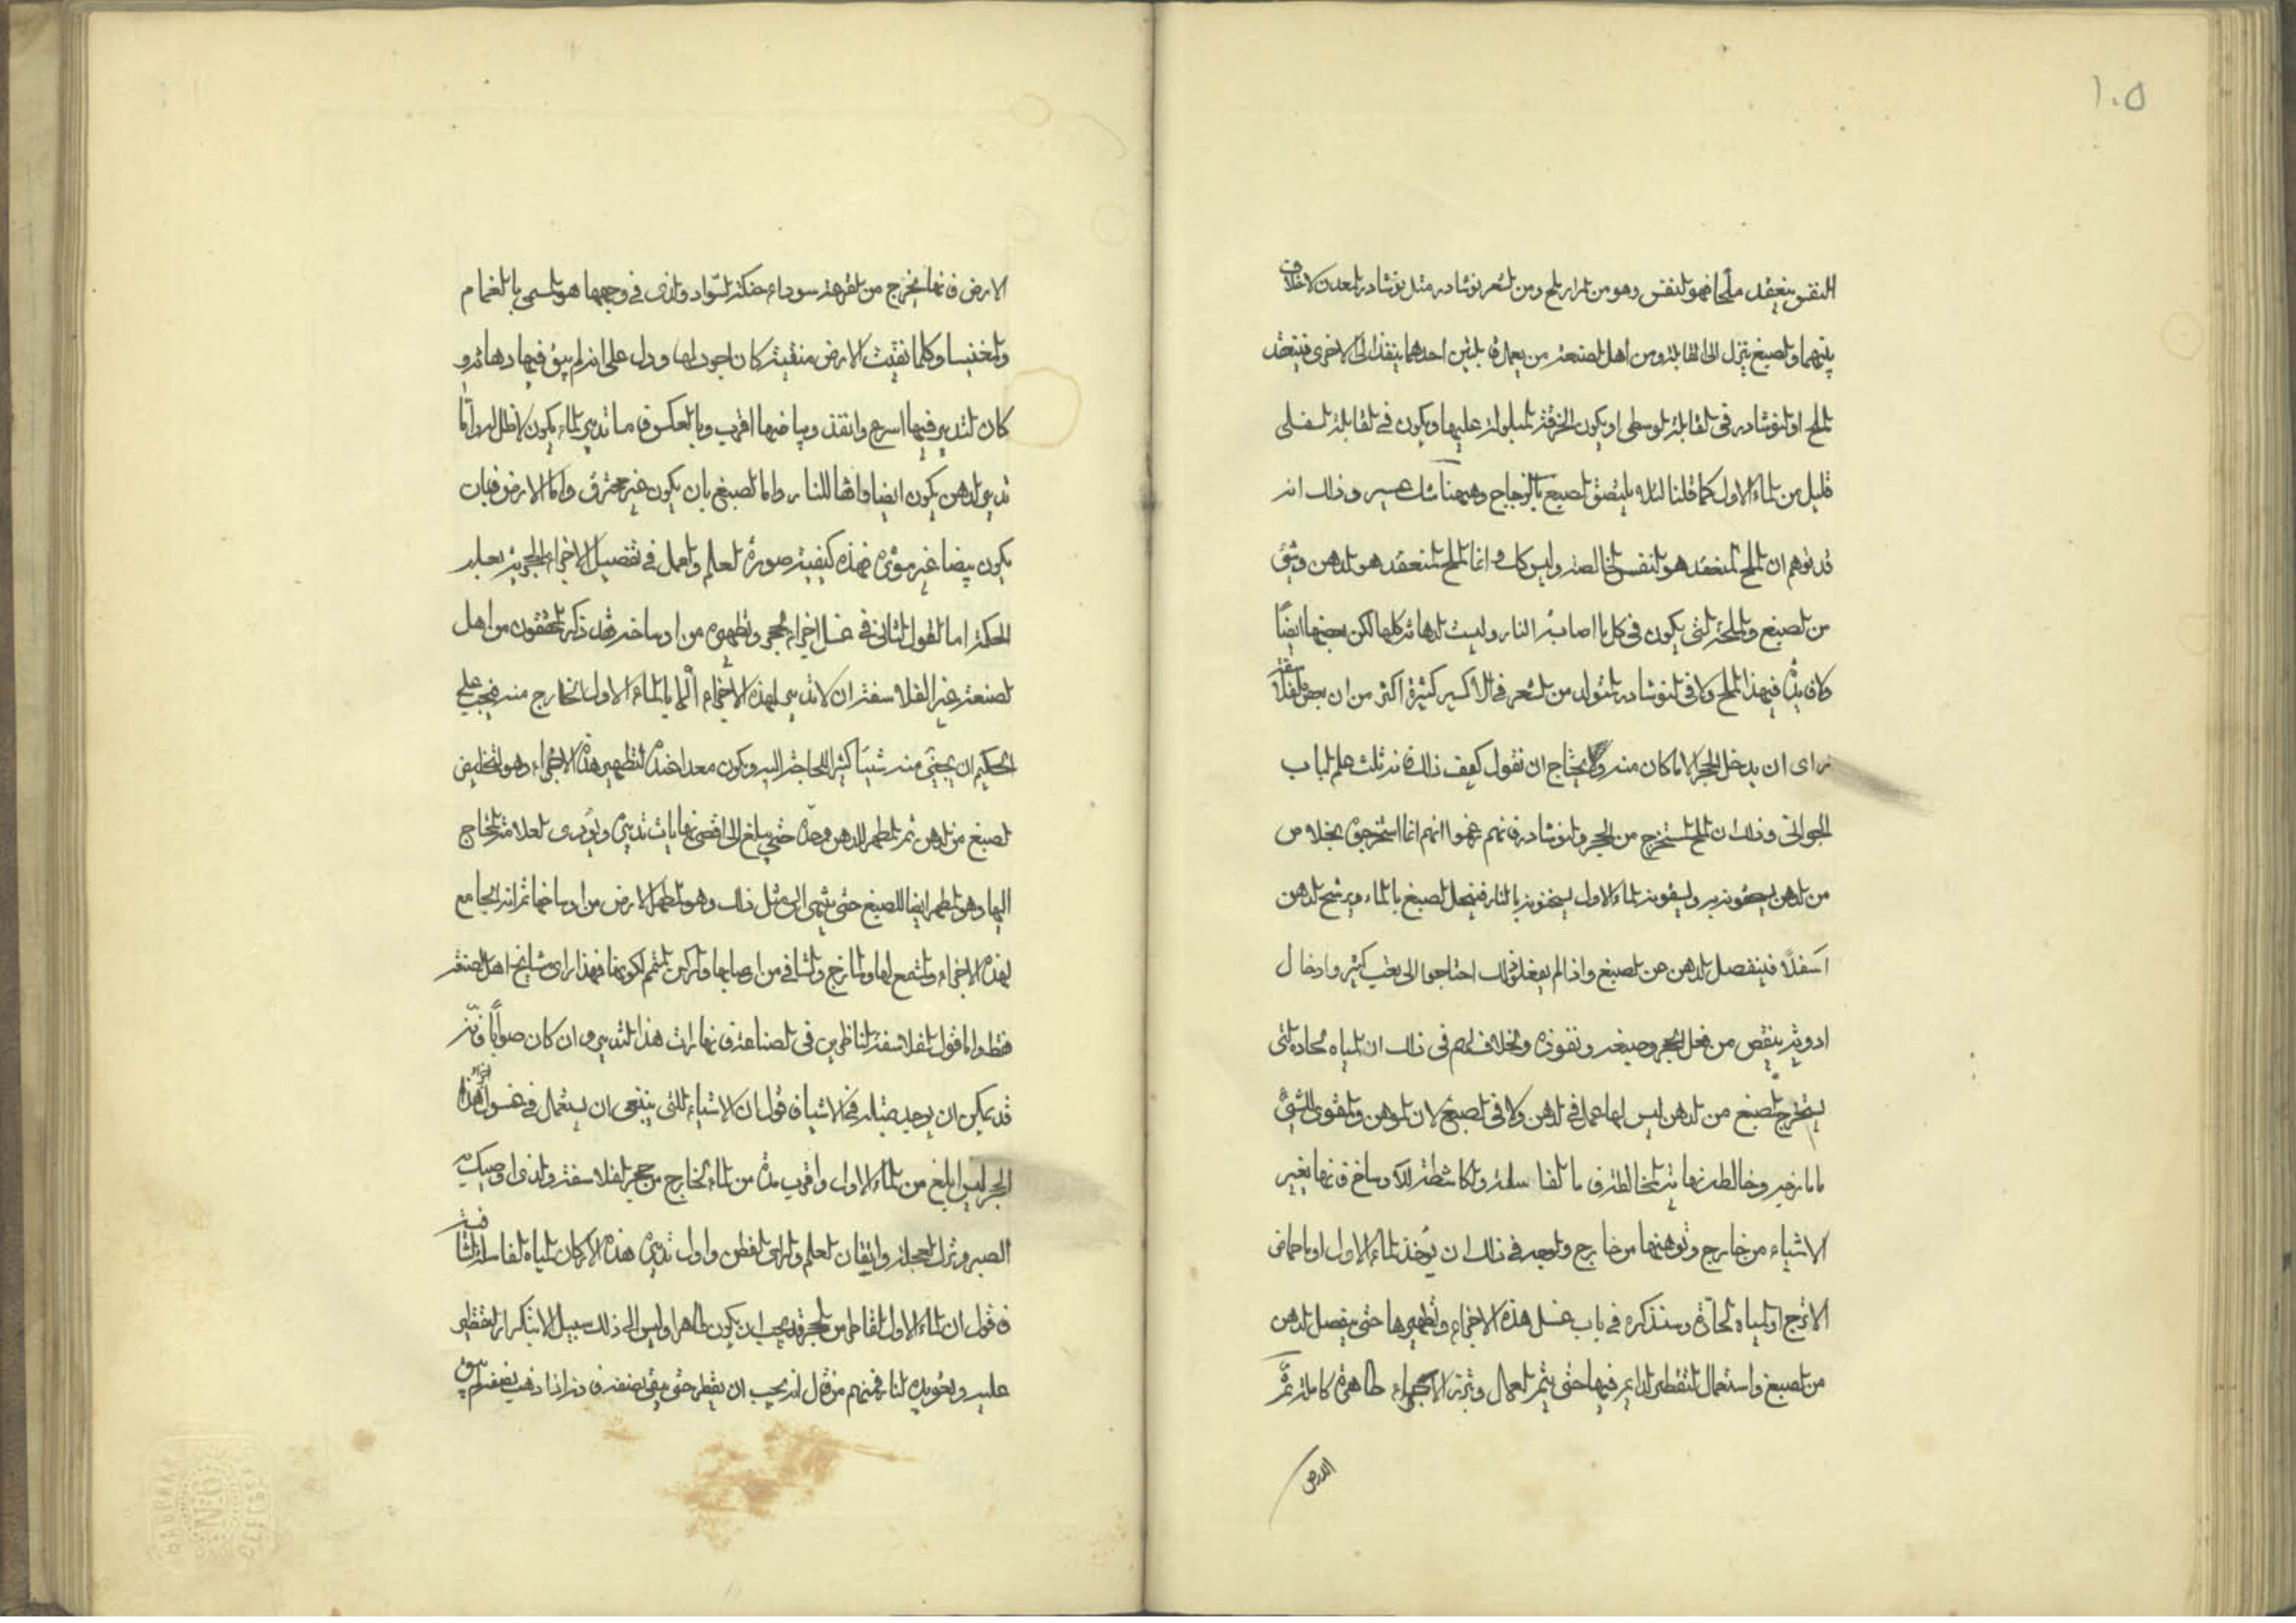 ١٠٥
النفس ينعقد ملحا فهو النفس وهو من المرار ملح ومن الشعر نوشادر مثل نوشادر المعدن لا خلاف
بينهما والصبغ ينزل الى القابلة ومن اهل الصنعة من يعمل قابلتين احدهما ينفذ الى الاخرى فينعقد
الملح او النوشادر فى القابلة الوسطى او يكون الخرقة المبلولة عليها ويكون فى القابلة السفلى
قليل من الماء الاول كما قلنا لئلا يلتصق الصبغ بالزجاج وههنا شك عسير وذلك انه
قد توهم ان الملح المنعقد هو النفس الخالصة وليس كك وانما الملح المنعقد هو الدهن وشئ
من الصبغ والملحة التى يكون فى كل ما اصابته النار وليست الدهانة كلها لكن بعضها ايضًا
ولا فائدة فى هذا الملح ولا فى النوشادر المتولد من الشعر فى الاكسير كثيرة اكثر من ان بعض الفلاسفة
راى ان يدخل الحجر الا ما كان منه ولا يحتاج ان نقول كيف ذلك فانه ثلث علم الباب
الجوانى وذلك ان الملح المستخرج من الحجر والنوشادر فانهم زعموا انهم انما استخرجوه بخلاص
من الدهن يسقونه ويسقونه الماء الاول يسخنونه بالنار فينحل الصبغ بالماء ويرشح الدهن
اسفلًا فينفصل الدهن من الصبغ واذا لم يفعلوا ذلك احتاجوا الى تعب كثير وادخال
ادوية ينقص من فعل الحجر وصبغه ونفوذه والخلاف لهم فى ذلك ان المياه الحادة التى
يستخرج الصبغ من الدهن ليس لها عمل فى الدهن ولا فى الصبغ لان الموهن والمقوى للشئ
ما مازجه وخالطه نهاية المخالطة فاما الغاسلة والكاشطة للاوساخ فانها يغير
الاشياء من خارج وتوهنها من خارج والوجه فى ذلك ان يؤخذ الماء الاول او ماء حماض
الاترج او المياه الحادة وسنذكره فى باب غسل هذه الاجزاء وتطهيرها حتى ينفصل الدهن
من الصبغ واستعمال التقطير الدايم فيها حتى يتم العمل وترد الاجزاء طاهرة كاملة ثمّ
الارض
الارض فانها يخرج من القرعة سوداء حالكة السّواد والذى فى وجهها هو المسمى بالغمام
والمغنيسا وكلما نقيت الارض منقية كان اجود لها ودل على انه لم يبق فيها دهانة و
كان التدبير فيها اسرع وانفذ وبياضها اقرب وبالعكس فاما تدبير الماء يكون لا ظل له واما
تدبير الدهن يكون ايضا واقفا للنار واما الصبغ بان يكون غير محترق واما الارض فبان
يكون بيضا غير مؤذية فهذه كيفية صورة العلم والعمل فى تفصيل الاجزاء الحجرية بعلم
الحكمة اما القول الثانى فى غسل اجزاء الحجر وتطهيره من اوساخه فقد ذكر المحققون من اهل
الصنعة غير الفلاسفة ان لا تدبير لهذه الاجزاء الا بالماء الاول الخارج منه فيجب على
الحكيم ان يجتنى منه شيئا كثيرا للحاجة اليه ويكون معدا عنده لتطهير هذه الاجزاء وهو لتخليص
الصبغ من الدهن ثم لتطهير الدهن وحده حتى يبلغ الى اقصى نهايات تدبيره ويؤدى العلامة المحتاج
اليها وهو المطهر ايضا للصبغ حتى ينتهى الى مثل ذلك وهو المطهر للارض من اوساخها ثم انه الجامع
لهذه الاجزاء والمشمع لها والمازج والشافى من اوصابها والركن المتمم لكونها فهذا راى مشايخ اهل الصنعة
فقط واما قول الفلاسفة الناظرين فى الصناعة فانهارات هذا التدبير وان كان صوابًا فانه
قد يمكن ان يوجد مثله فى الاشياء فنقول ان الاشياء التى ينبغى ان يستعمل فى غسول هذا
الحجر ليس ابلغ من الماء الاول واقرب مدة من الماء الخارج من حجر الفلاسفة والذى اوصيك به
الصبر وترك العجلة وايقان العلم والراى الفطن واول تدبير هذه الاركان المياه الغاسلة الشافية
فنقول ان الماء الاول القاطر من الحجر قد يجب ان يكون طاهرا وليس الى ذلك سبيل الا بتكرار التقطير
عليه وتعويده النار فمنهم من قال انه يجب ان يقطر حتى يبقى نصفه فانه اذا ذهب نصفه لم يبق